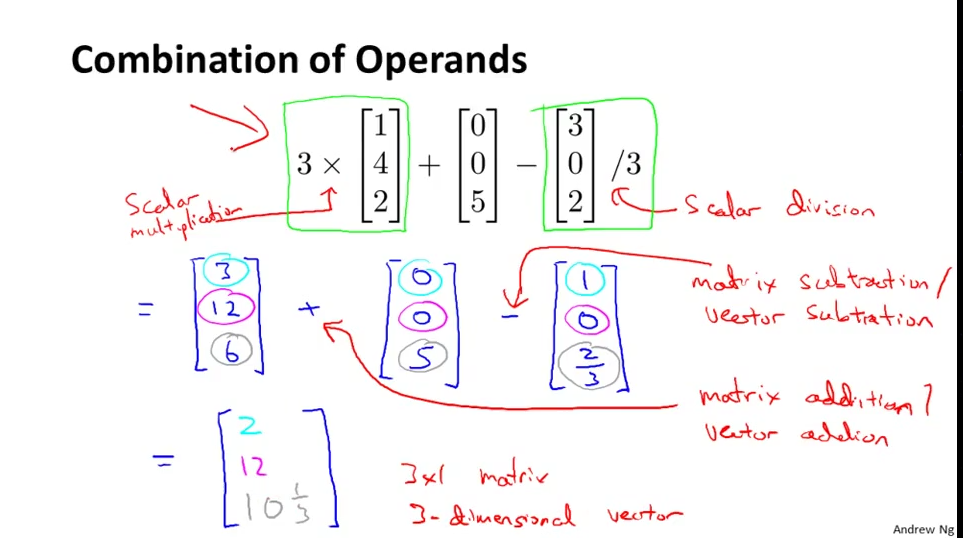 Combination of Operands
3 × [1 4 2] + [0 0 5] − [3 0 2] /3
Scalar
multiplication
Scalar division
= [3 12 6] + [0 0 5] − [1 0 2/3]
matrix subtraction /
vector subtration
matrix addition /
vector addion
= [2 12 10 1/3]
3x1 matrix
3-dimensional vector
Andrew Ng